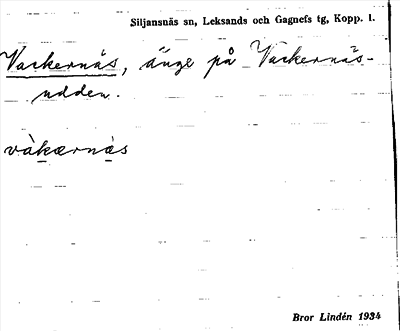 Siljansnäs sn, Leksands och Gagnefs tg, Kopp. l.
Vackernäs, änge på Vackernäs-
udden.
vàkærnæ̀s
Bror Lindén 1934